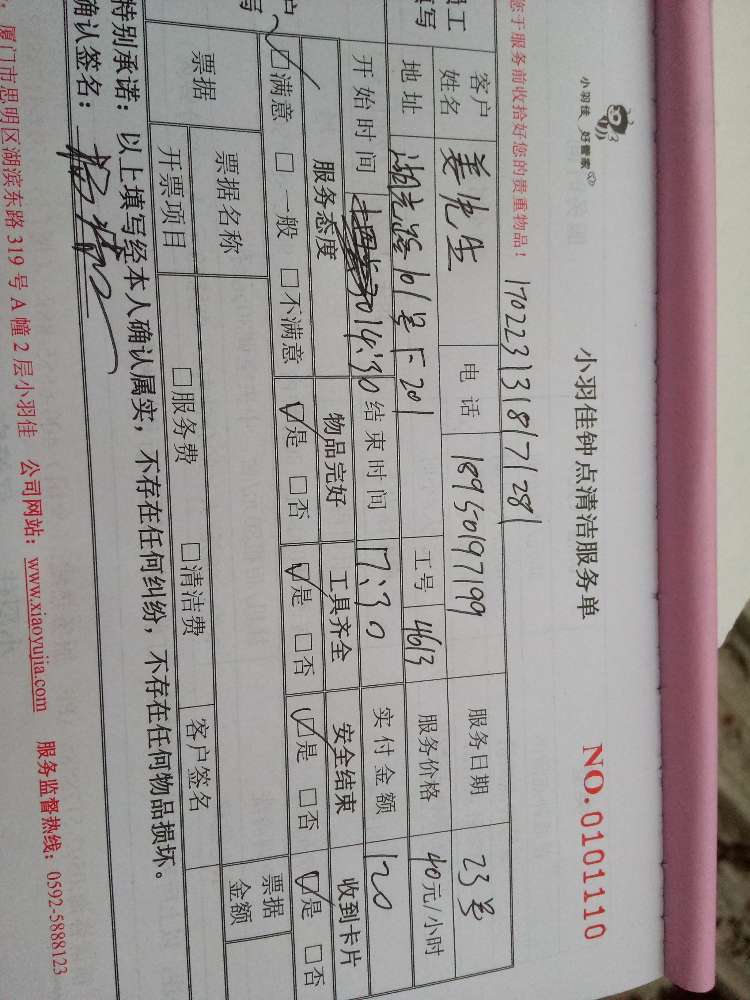 小羽佳 好管家
小羽佳钟点清洁服务单
NO.0101110
您于服务前收拾好您的贵重物品！
170223131871728
客户姓名 姜先生 电话 18950197199 服务日期 23号
地址 湖光路101号 工号 4613 服务价格 40元/小时
开始时间 14:30 结束时间 17:30 实付金额 120
服务态度 物品完好 工具齐全 安全结束 收到卡片
☑满意 □一般 □不满意 ☑是 □否 ☑是 □否 ☑是 □否 ☑是 □否
票据 票据名称 票据金额
开票项目 □服务费 □清洁费 客户签名
特别承诺：以上填写经本人确认属实，不存在任何纠纷，不存在任何物品损坏。
确认签名：
厦门市思明区湖滨东路319号A幢2层小羽佳 公司网站：www.xiaoyujia.com 服务监督热线：0592-5888123